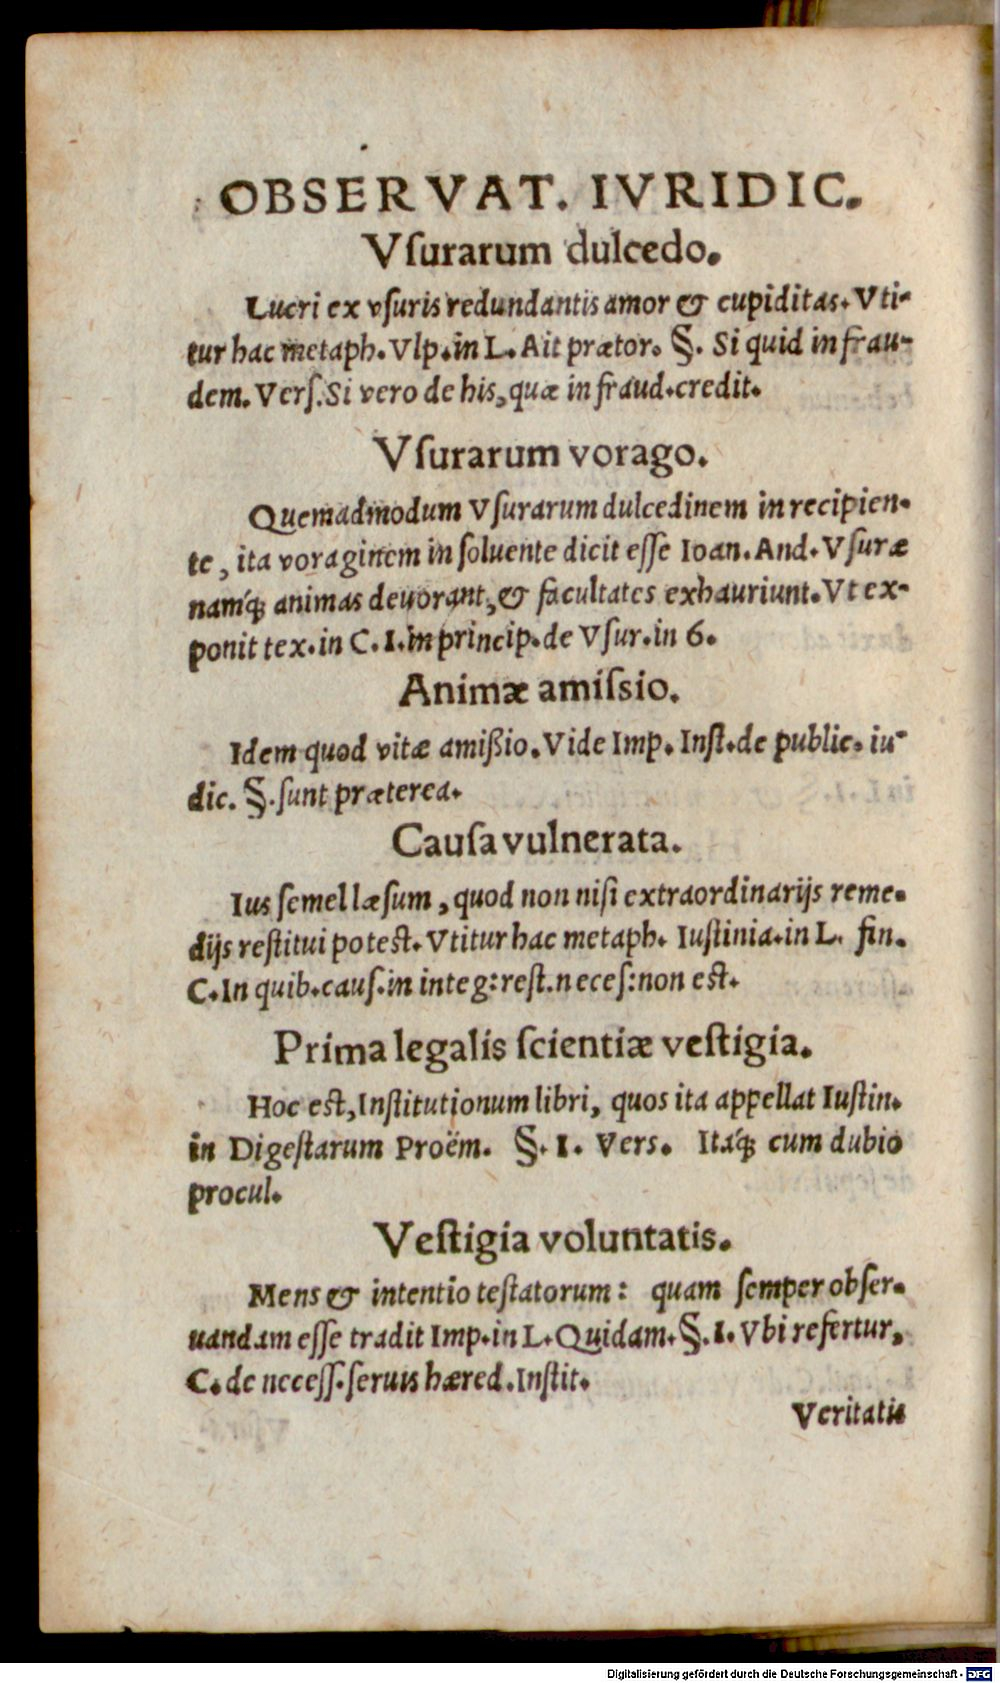 OBSERVAT. IVRIDIC.
Vſurarum dulcedo.
Lucri ex vſuris redundantis amor & cupiditas. Vti-
tur hac metaph. Vlp. in L. Ait prætor. §. Si quid in frau-
dem. Verſ. Si vero de his, quæ in fraud. credit.
Vſurarum vorago.
Quemadmodum Vſurarum dulcedinem in recipien-
te, ita voraginem in ſoluente dicit eſſe Ioan. And. Vſuræ
namq́; animas deuorant, & facultates exhauriunt. Vt ex-
ponit tex. in C. I. in princip. de Vſur. in 6.
Animæ amiſsio.
Idem quod vitæ amißio. Vide Imp. Inſt. de public. iu-
dic. §. ſunt præterea.
Cauſa vulnerata.
Ius ſemel læſum, quod non niſi extraordinarijs reme-
dijs reſtitui poteſt. Vtitur hac metaph. Iuſtinia. in L. fin.
C. In quib. cauſ. in integ: reſt. neceſ: non eſt.
Prima legalis ſcientiæ veſtigia.
Hoc eſt, Inſtitutionum libri, quos ita appellat Iuſtin.
in Digeſtarum Proëm. §. I. Vers. Itaq́; cum dubio
procul.
Veſtigia voluntatis.
Mens & intentio teſtatorum: quam ſemper obſer-
uandam eſſe tradit Imp. in L. Quidam. §. I. Vbi refertur,
C. de neceſſ. ſeruis hæred. Inſtit.
Veritatis
Digitalisierung gefördert durch die Deutsche Forschungsgemeinschaft - DFG